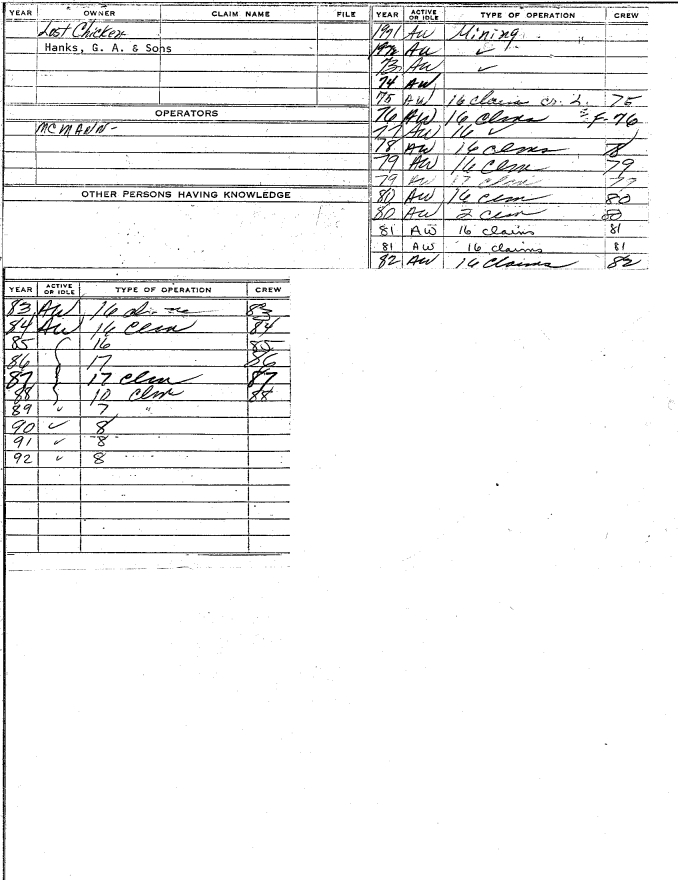 YEAR OWNER CLAIM NAME FILE
Lost Chicken
Hanks, G. A. & Sons
OPERATORS
MCMANN-
OTHER PERSONS HAVING KNOWLEDGE
YEAR ACTIVE OR IDLE TYPE OF OPERATION CREW
1971 AW Mining
1972 AW ✓
73 AW ✓
74 AW
75 AW 16 claims 75
76 AW 16 Clms F-76
77 AW 16 ✓
78 AW 16 clms
79 AW 16 Clm 79
79 clm
80 AW 16 clm 80
80 AW 2 clm 80
81 AW 16 claims 81
81 AW 16 claims 81
82 AW 16 Claims 82
YEAR ACTIVE OR IDLE TYPE OF OPERATION CREW
83 AW 16 83
84 AW 16 Clm 84
85 16 85
86 17 86
87 17 clm 87
88 10 clm 88
89 " 7 "
90 ✓ 8
91 ✓ 8
92 " 8